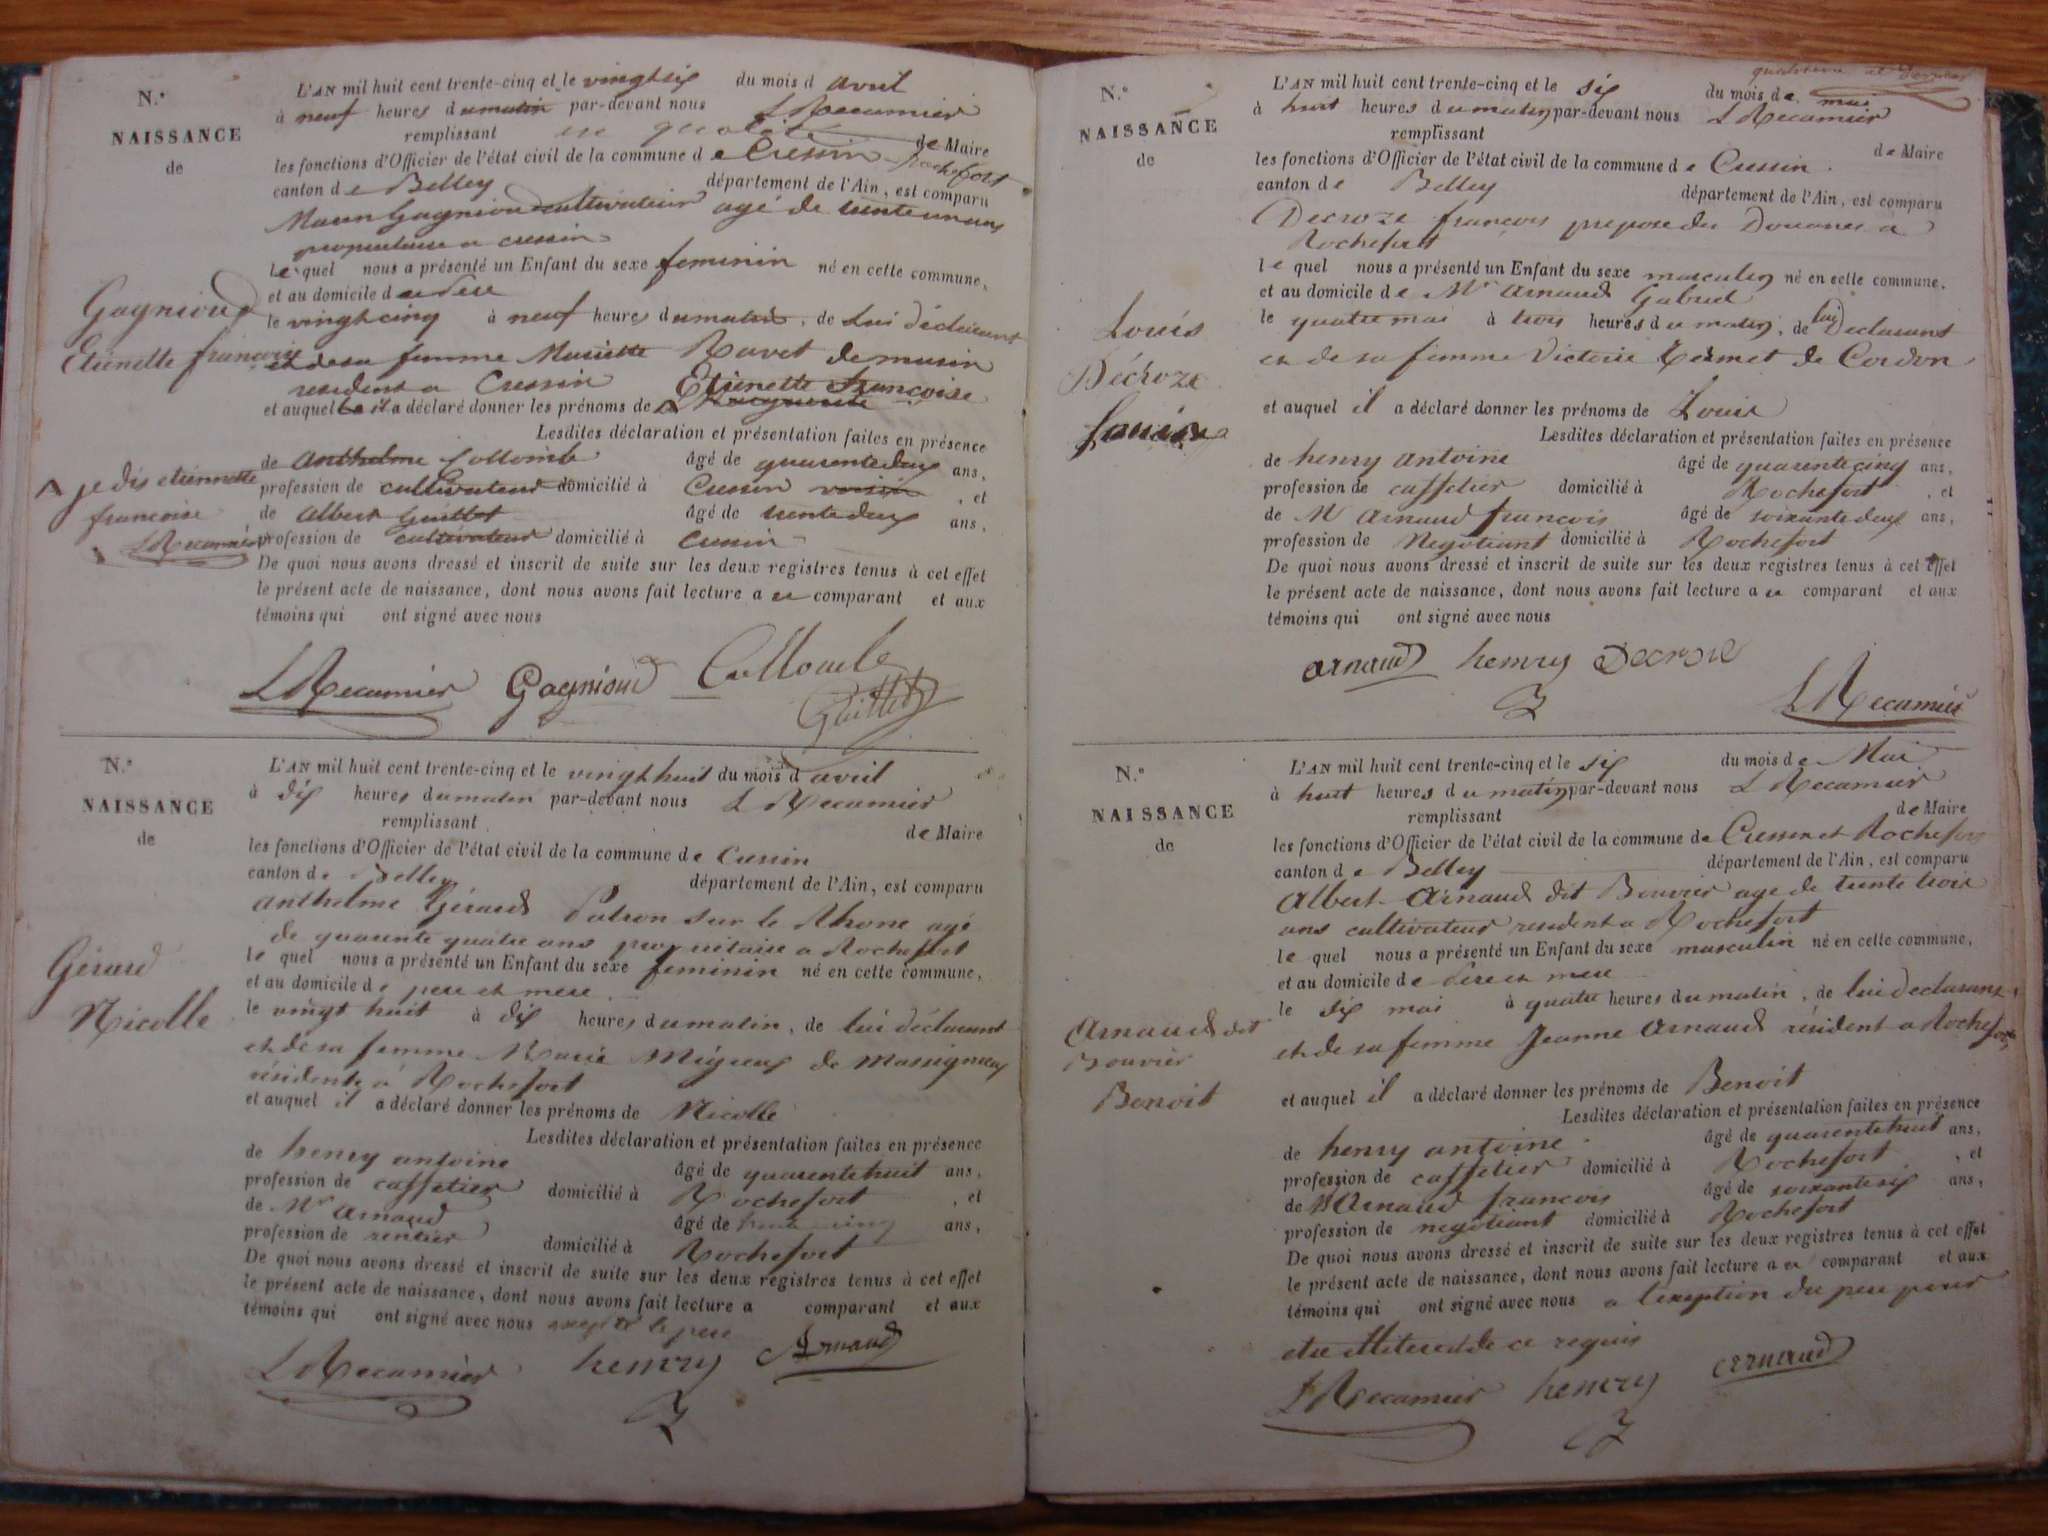 N.°
NAISSANCE
de
L'AN mil huit cent trente-cinq et le vingt six du mois d avril
à neuf heures du matin par-devant nous L Recamier
remplissant en qualité de Maire
les fonctions d'Officier de l'état civil de la commune de Cressin Rochefort
canton de Belley département de l'Ain, est comparu
Gagnioud cultivateur agé de trente un ans
propriétaire a cressin
lequel nous a présenté un Enfant du sexe feminin né en cette commune,
et au domicile du Pere
le vingt cinq à neuf heures du matin, de Lui déclarant
et de sa femme Mariette Ravet de musin
residents a Cressin Etienette françoise
et auquel il a déclaré donner les prénoms de
Lesdites déclaration et présentation faites en présence
de anthelme Collomb âgé de quarente deux ans,
profession de cultivateur domicilié à Cressin voisin, et
de albert Guillot âgé de trente deux ans,
profession de cultivateur domicilié à Cressin
De quoi nous avons dressé et inscrit de suite sur les deux registres tenus à cet effet
le présent acte de naissance, dont nous avons fait lecture a u comparant et aux
témoins qui ont signé avec nous
Gagnioud
Etienette françoise
je dis etiennette
francoise
L Recamier
L Recamier Gagnioud Collomb
Guillot
N.°
NAISSANCE
de
L'AN mil huit cent trente-cinq et le vingt huit du mois d avril
à dix heures du matin par-devant nous L Recamier
remplissant de Maire
les fonctions d'Officier de l'état civil de la commune de Cressin
canton de Belley département de l'Ain, est comparu
anthelme Gérard Patron sur le Rhone agé
de quarente quatre ans propriétaire a Rochefort
le quel nous a présenté un Enfant du sexe feminin né en cette commune,
et au domicile de pere et mere
le vingt huit à dix heures du matin, de lui déclarant
et de sa femme Marie de Massigneux
résidents a Rochefort
et auquel il a déclaré donner les prénoms de Nicolle
Lesdites déclaration et présentation faites en présence
de henry antoine âgé de quarente huit ans,
profession de caffetier domicilié à Rochefort, et
de Mr arnaud âgé de cinq ans,
profession de rentier domicilié à Rochefort
De quoi nous avons dressé et inscrit de suite sur les deux registres tenus à cet effet
le présent acte de naissance, dont nous avons fait lecture a comparant et aux
témoins qui ont signé avec nous excepté le pere
Gérard
Nicolle
L Recamier henry Arnaud
N.°
NAISSANCE
de
L'AN mil huit cent trente-cinq et le six du mois de mai
à huit heures du matin par-devant nous L Recamier
remplissant de Maire
les fonctions d'Officier de l'état civil de la commune de Cressin
canton de Belley département de l'Ain, est comparu
Decroze francois preposé des Douanes a
Rochefort
le quel nous a présenté un Enfant du sexe masculin né en cette commune,
et au domicile de Mr arnaud Gabriel
le quatre mai à trois heures du matin, de lui Declarant
et de sa femme Victoire de Cordon
et auquel il a déclaré donner les prénoms de Louis
Lesdites déclaration et présentation faites en présence
de henry antoine âgé de quarente cinq ans,
profession de caffetier domicilié à Rochefort, et
de M arnaud francois âgé de soixante deux ans,
profession de Negotiant domicilié à Rochefort
De quoi nous avons dressé et inscrit de suite sur les deux registres tenus à cet effet
le présent acte de naissance, dont nous avons fait lecture a u comparant et aux
témoins qui ont signé avec nous
Louis
Décroze
arnaud henry Decroze
L Recamier
N.°
NAISSANCE
de
L'AN mil huit cent trente-cinq et le six du mois de Mai
à huit heures du matin par-devant nous L Recamier
remplissant de Maire
les fonctions d'Officier de l'état civil de la commune de Cressin et Rochefort
canton de Belley département de l'Ain, est comparu
albert Arnaud dit Bouvier age de trente trois
ans cultivateur resident a Rochefort
le quel nous a présenté un Enfant du sexe masculin né en cette commune,
et au domicile de Pere et mere
le six mai à quatre heures du matin, de lui declarant
et de sa femme Jeanne Arnaud résident a Rochefort
et auquel il a déclaré donner les prénoms de Benoit
Lesdites déclaration et présentation faites en présence
de henry antoine âgé de quarente huit ans,
profession de caffetier domicilié à Rochefort, et
de M Arnaud francois âgé de soixante six ans,
profession de negotiant domicilié à Rochefort
De quoi nous avons dressé et inscrit de suite sur les deux registres tenus à cet effet
le présent acte de naissance, dont nous avons fait lecture a u comparant et aux
témoins qui ont signé avec nous a l'exeption du pere pour
etre illiteré de ce requis
Arnaud dit
Bouvier
Benoit
L Recamier henry arnaud